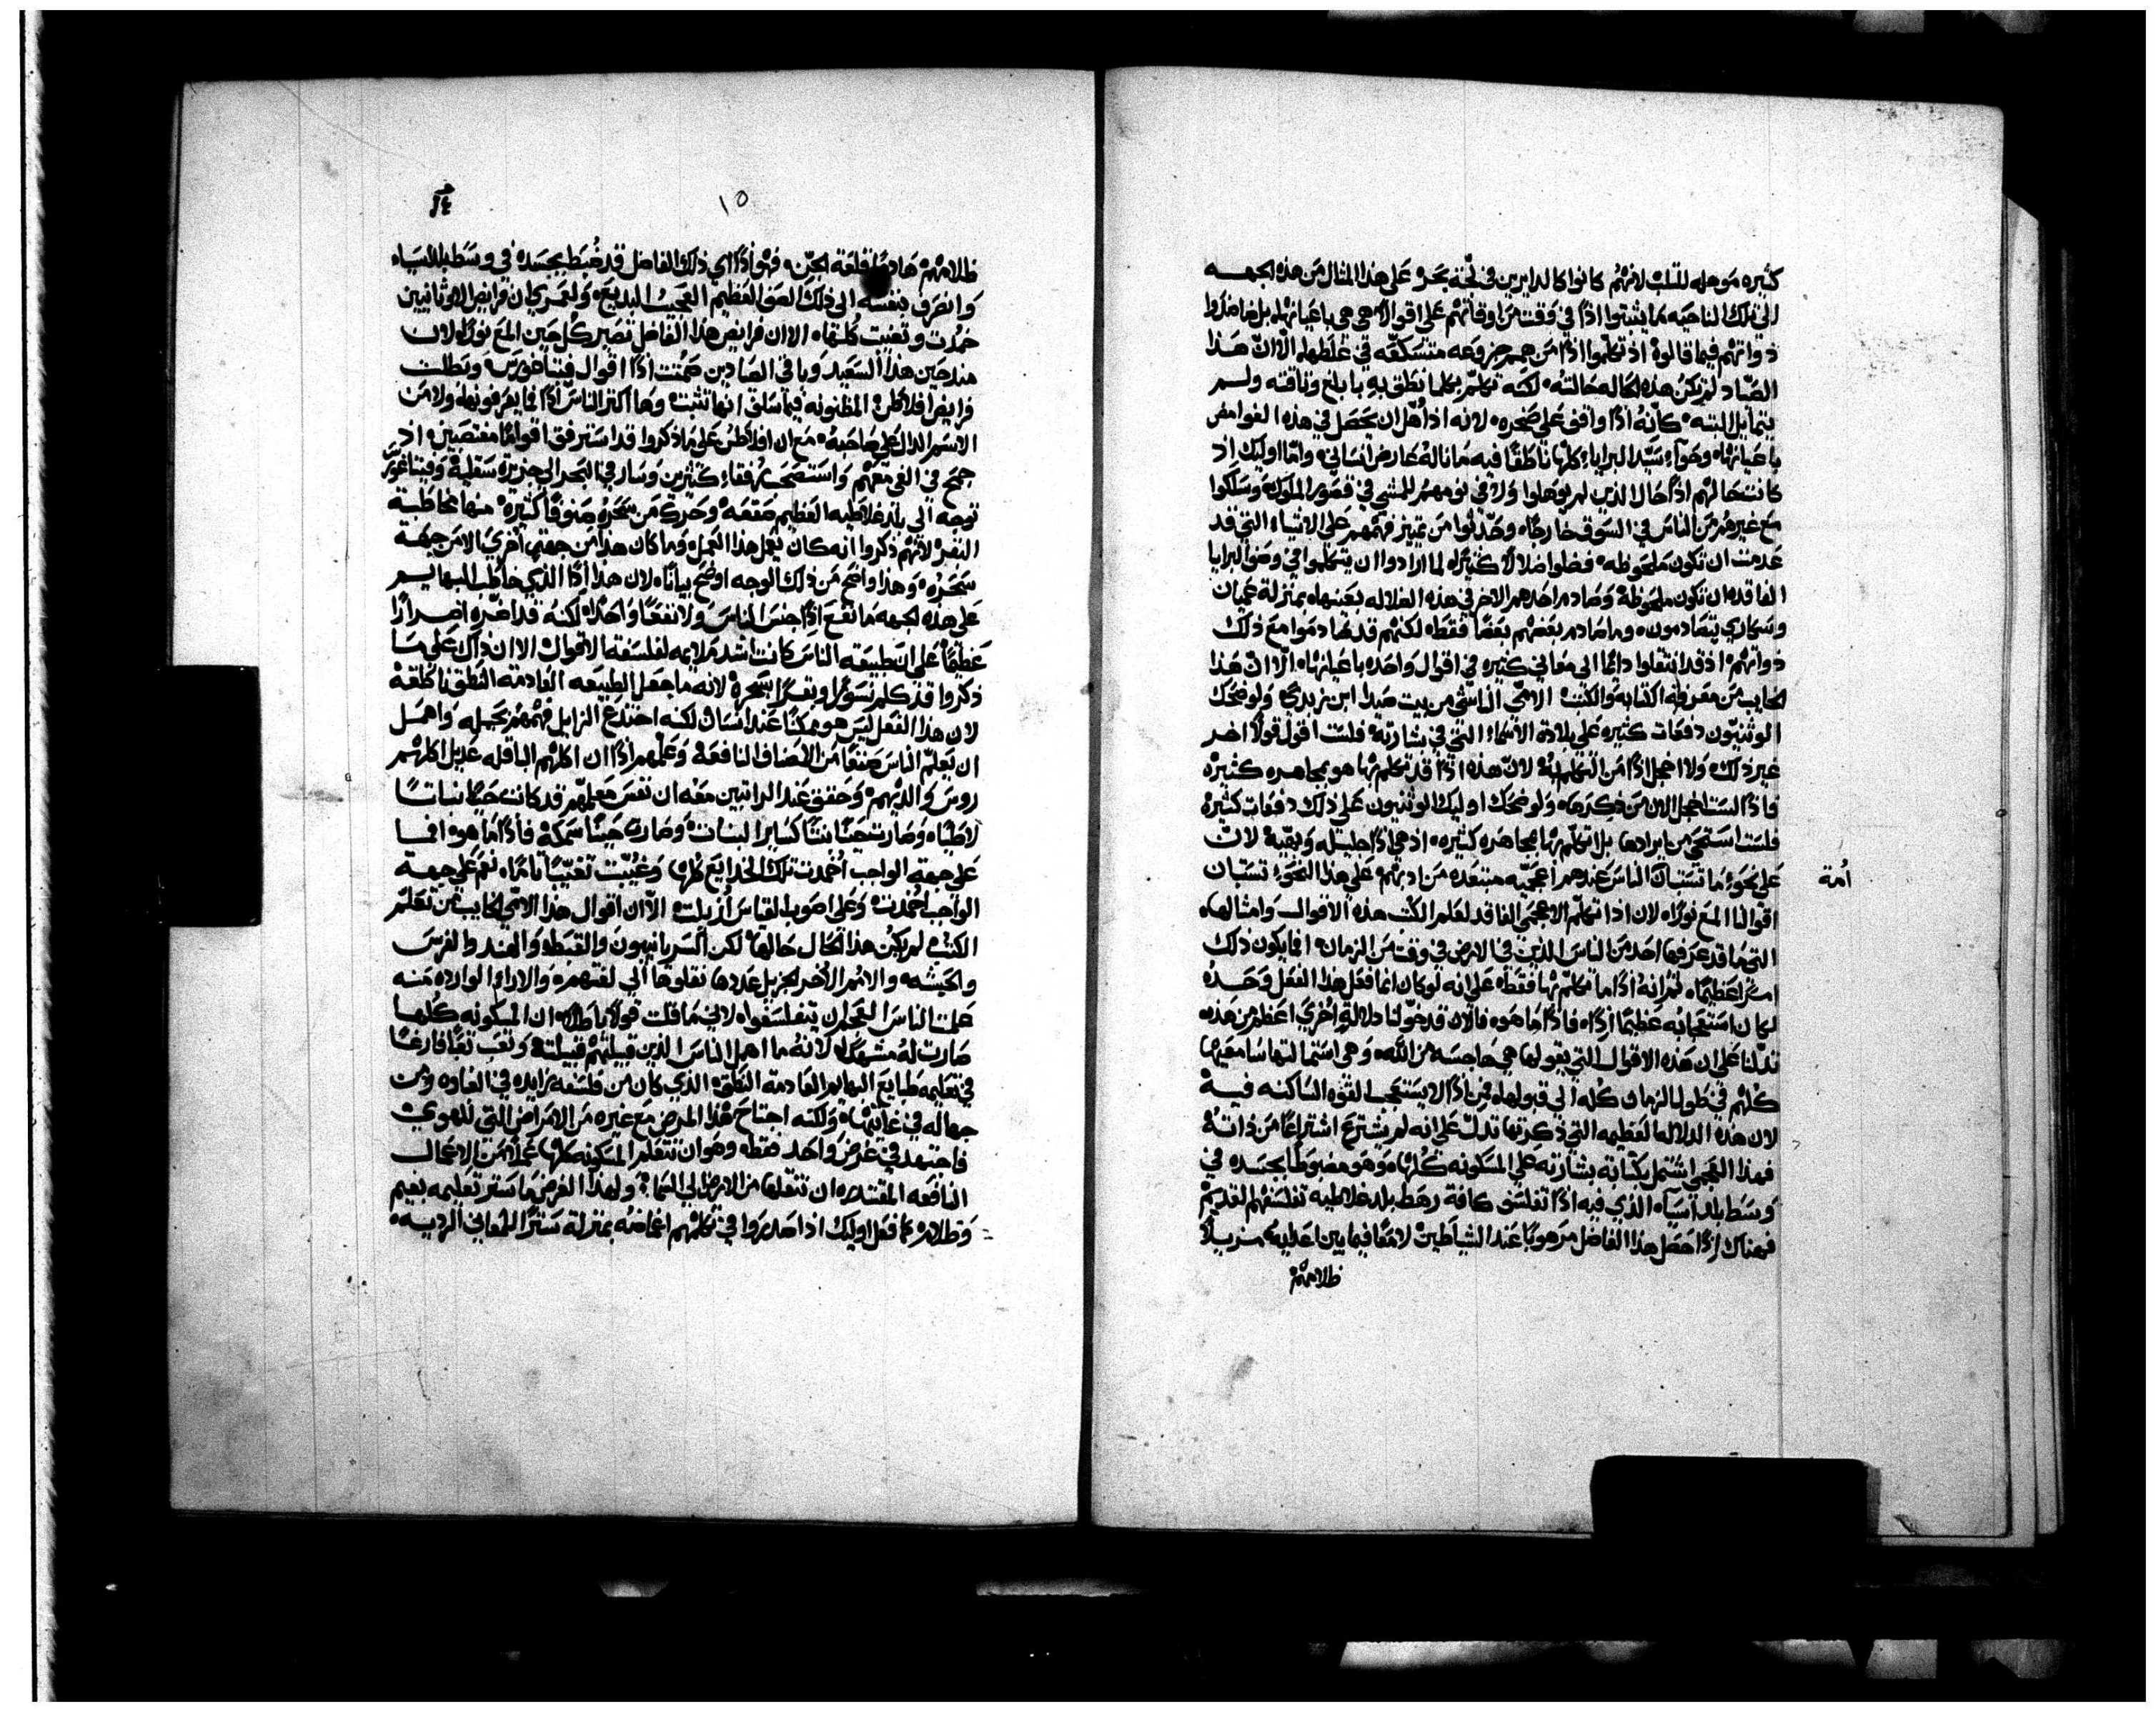 كثيره موهله للثلب لانهم كانوا كالدايرين في لجّة بحر على هذا المثال من هذه الجهه
الى تلك الناحيه ما يثبتوا اذًا في وقت من اوقاتهم على اقوالٍ هي هي باعيانها بل ضاددوا
ذواتهم فيما قالوه اذ تكلموا اذًا من حجج مزوعه متسكعّه في غلطها الّا انّ هذا
الصيّاد لم تكن هذه الحاله حالته لكنه تكلّم بكلما نطق به بابلغ وثاقته ولم
يتمايل البته كانّه اذًا واقف على صخره لانه اذ اُهّل ان يحصل في هذه الغوامض
باعيانها وحوآء سيّد البرايا كلها ناطقًا فيه ما ناله عارض انساني وامّا اوليك اذ
كانت حالهم اذًا حال الذين لم يوهلوا ولا في نومهم للمشي في قصور الملوك وسلكوا
مع غيرهم من الناس في السوق خارجًا وحدّثوا من تمييز فهمهم على الاشياء التي قد
عدمت ان تكون ملحوظه فضلوا ضلالاً كثيرًا لما ارادوا ان يتكلموا في وصف البرايا
الفاقده ان تكون ملحوظة وصادم احدهم الاخر في هذه الضلاله بعينها بمنزلة عميان
وسكارى يتصادمون وما صادم بعضهم بعضًا فقط لكنهم قد صادموا مع ذلك
ذواتهم اذ قد انتقلوا دايمًا الى معاني كثيره في اقوال واحده باعيانها الّا انّ هذا
الخايب من معرفة الكتابه والكتب الامّي الناشي من بيت صيدا ابن زبدي ولو ضحك
الوثنيّون دفعات كثيره على بلادة الاسماء التي في بشارته فلست اقول قولاً اخر
غير ذلك ولا اخجل اذًا من التكلم به لانّ هذه اذًا قد تكلم بها هو بمجاهره كثيره
فاذًا لست اخجل الان من ذكرها ولو ضحك اوليك الوثنيون على ذلك دفعات كثيره
فلست استحي من ايرادها بل اتكلّم بها بمجاهره كثيره اذ هي اذًا جليله وبهيّه لانّ
على نحو ما تستبان الناس عندهم اعجميّه مبتعده من ادبهم على هذا النحو تستبان
امّة
اقوالنا المع نورًا لان اذا تكلّم الاعجمي الفاقد لعلم الكتب هذه الاقوال وامثالها
التي ما قد عرفها احد من الناس الذين في الارض في وقت من الزمان افما يكون ذلك
امرًا عظيمًا ثم انه اذًا ما تكلّم بها فقط على انه لو كان انما فعل هذا الفعل وحده
لكان استعجابه عظيمًا اذًا فاذًا ما هو فالان قد خوّلنا دلالة اخرى اعظم من هذه
تدلّنا على ان هذه الاقوال التي يقولها هي هاجسه من الله وهي استمالتها سامعيها
كلهم في طول الزمان كله الى قبولها فمن اذًا لا يستعجب القوه الساكنه فيه
لان هذه الدلاله العظيمه التي ذكرتها تدلّ على انه لم يشترع اشتراعًا من ذاته
فهذا العجمي اشتمل بكتابة بشارته على المسكونه كلها وهو مضبوطًا بجسده في
وسط بلد اسيا الذي فيه اذًا تفلسف كافة رهط بلد غلاطيه تفلسفهم القديم
فهناك اذًا حصل هذا الفاضل مرهوبًا عند الشياطين لامعًا فيما بين اعدايه مزيلاً
ظلامهم
١٥
ظلامهم هادمًا قلعة الجنّ فهو اذًا اي ذلك الفاضل قد ضُبط بجسده في وسط بلد اسيا
وانصرف بنفسه الى ذلك الصقع العظيم العجيب البديع ولعمري ان فرايض الاوثانيين
خمدت وتعفت كلها الا ان فرايض هذا الفاضل تصير كل حين المع نورًا لان
منذ حين هذا السعيد وباقي الصيادين صمتت اذًا اقوال فيثاغورس وبطلت
فرايض افلاطن المظنونه فيما سلق انها تثبت وها اكثر الناس اذًا ما يعرفونها ولا من
الاسم الدال على صاحبه مع ان افلاطن على ما ذكروا قد استرفق اقوامًا مغتصبين اذ
جمح في الغي معهم واستصحب رفقاء كثيرين وسار في البحر الى جزيرة سقليه وفيثاغورس
توجه الى بلد غلاطيه العظيم صقعه وحرك من سحره صنوفًا كثيرة منها مخاطبة
البقر لانهم ذكروا انه كان يعمل هذا العمل وما كان هذا من جهة اخرى الا من جهة
سحره وهذا واضح من ذلك الوجه اوضح بيانًا لان هذا اذًا الذي خاطب البهايم
على هذه الجهه ما نفع اذًا جنس الناس ولا نفعًا واحدًا لكنه قد اضّره اضرارًا
عظيمًا على ان طبيعة الناس كانت اشد ملايمه لفلسفة الاقوال الا ان ذاك على ما
ذكروا قد كلم نسورًا وبقرًا بسحره لانه ما جعل الطبيعه العادمة النطق ناطقة
لان هذا الفعل ليس هو ممكنًا عند انسان لكنه اختدع الزايل فهمهم بحيله واهمل
ان يعلّم الناس صنفًا من الاصناف النافعه وعلمهم اذًا ان اكلهم الباقله عديل اكلهم
روس والديهم وحقق عند الراتبين معه ان نفس معلمهم قد كانت حينًا نباتًا
لاطيًا وصارت حينًا بنتًا كساير البنات وصارت حينًا سمكة فاذًا ما هو افما
على جهة الواجب اُخمدت تلك الخدايع كلها وغُيبت تغييبًا تامًا نعم على جهة
الواجب اُخمدت وعلى اصوب القياس اُزيلت الّا ان اقوال هذا الامّي الخايب من تعلّم
الكتب لم يكن هذا الحال حالها لكن السريانيون والقبط والهند والفرس
والحبشه والامم الاُخر الجزيل عددها نقلوها الى لغتهم والاراء الوارده منه
علمت الناس العجم ان يتفلسفوا لاني ما قلت قولاً باطلاً ان المسكونه كلها
صارت له مشهدًا لانه ما اهمل الناس الذين قبيلتهم قبيلته وتعب تعبًا فارغًا
في تعليمه طبايع البهايم العادمة النطق الذي كان من فلسفه زايده في الغاوه ومن
جهاله في غايتها ولكنه اجتاح هذا المرض مع غيره من الامراض التي للهوى
فاجتهد في غرض واحد فقط وهو ان تتعلم المسكونه كلها عملاً من الاعمال
النافعه المقتدره ان تنقلها من الارض الى السما ولهذا الغرض ما ستر تعليمه بغيم
وظلام كما فعل اوليك اذ احدروا في تكلمهم اغماضه بمنزلة سترًا للمعاني الرديه